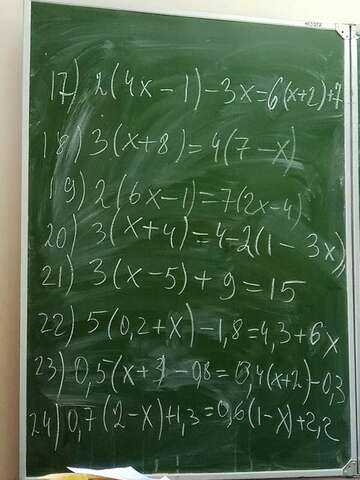 17) 2(4x-1)-3x=6(x+2)+7
18) 3(x+8)=4(7-x)
19) 2(6x-1)=7(2x-4)
20) 3(x+4)=4-2(1-3x)
21) 3(x-5)+9=15
22) 5(0,2+x)-1,8=4,3+6x
23) 0,5(x+3)-0,8=0,4(x+2)-0,3
24) 0,7(2-x)+1,3=0,6(1-x)+2,2